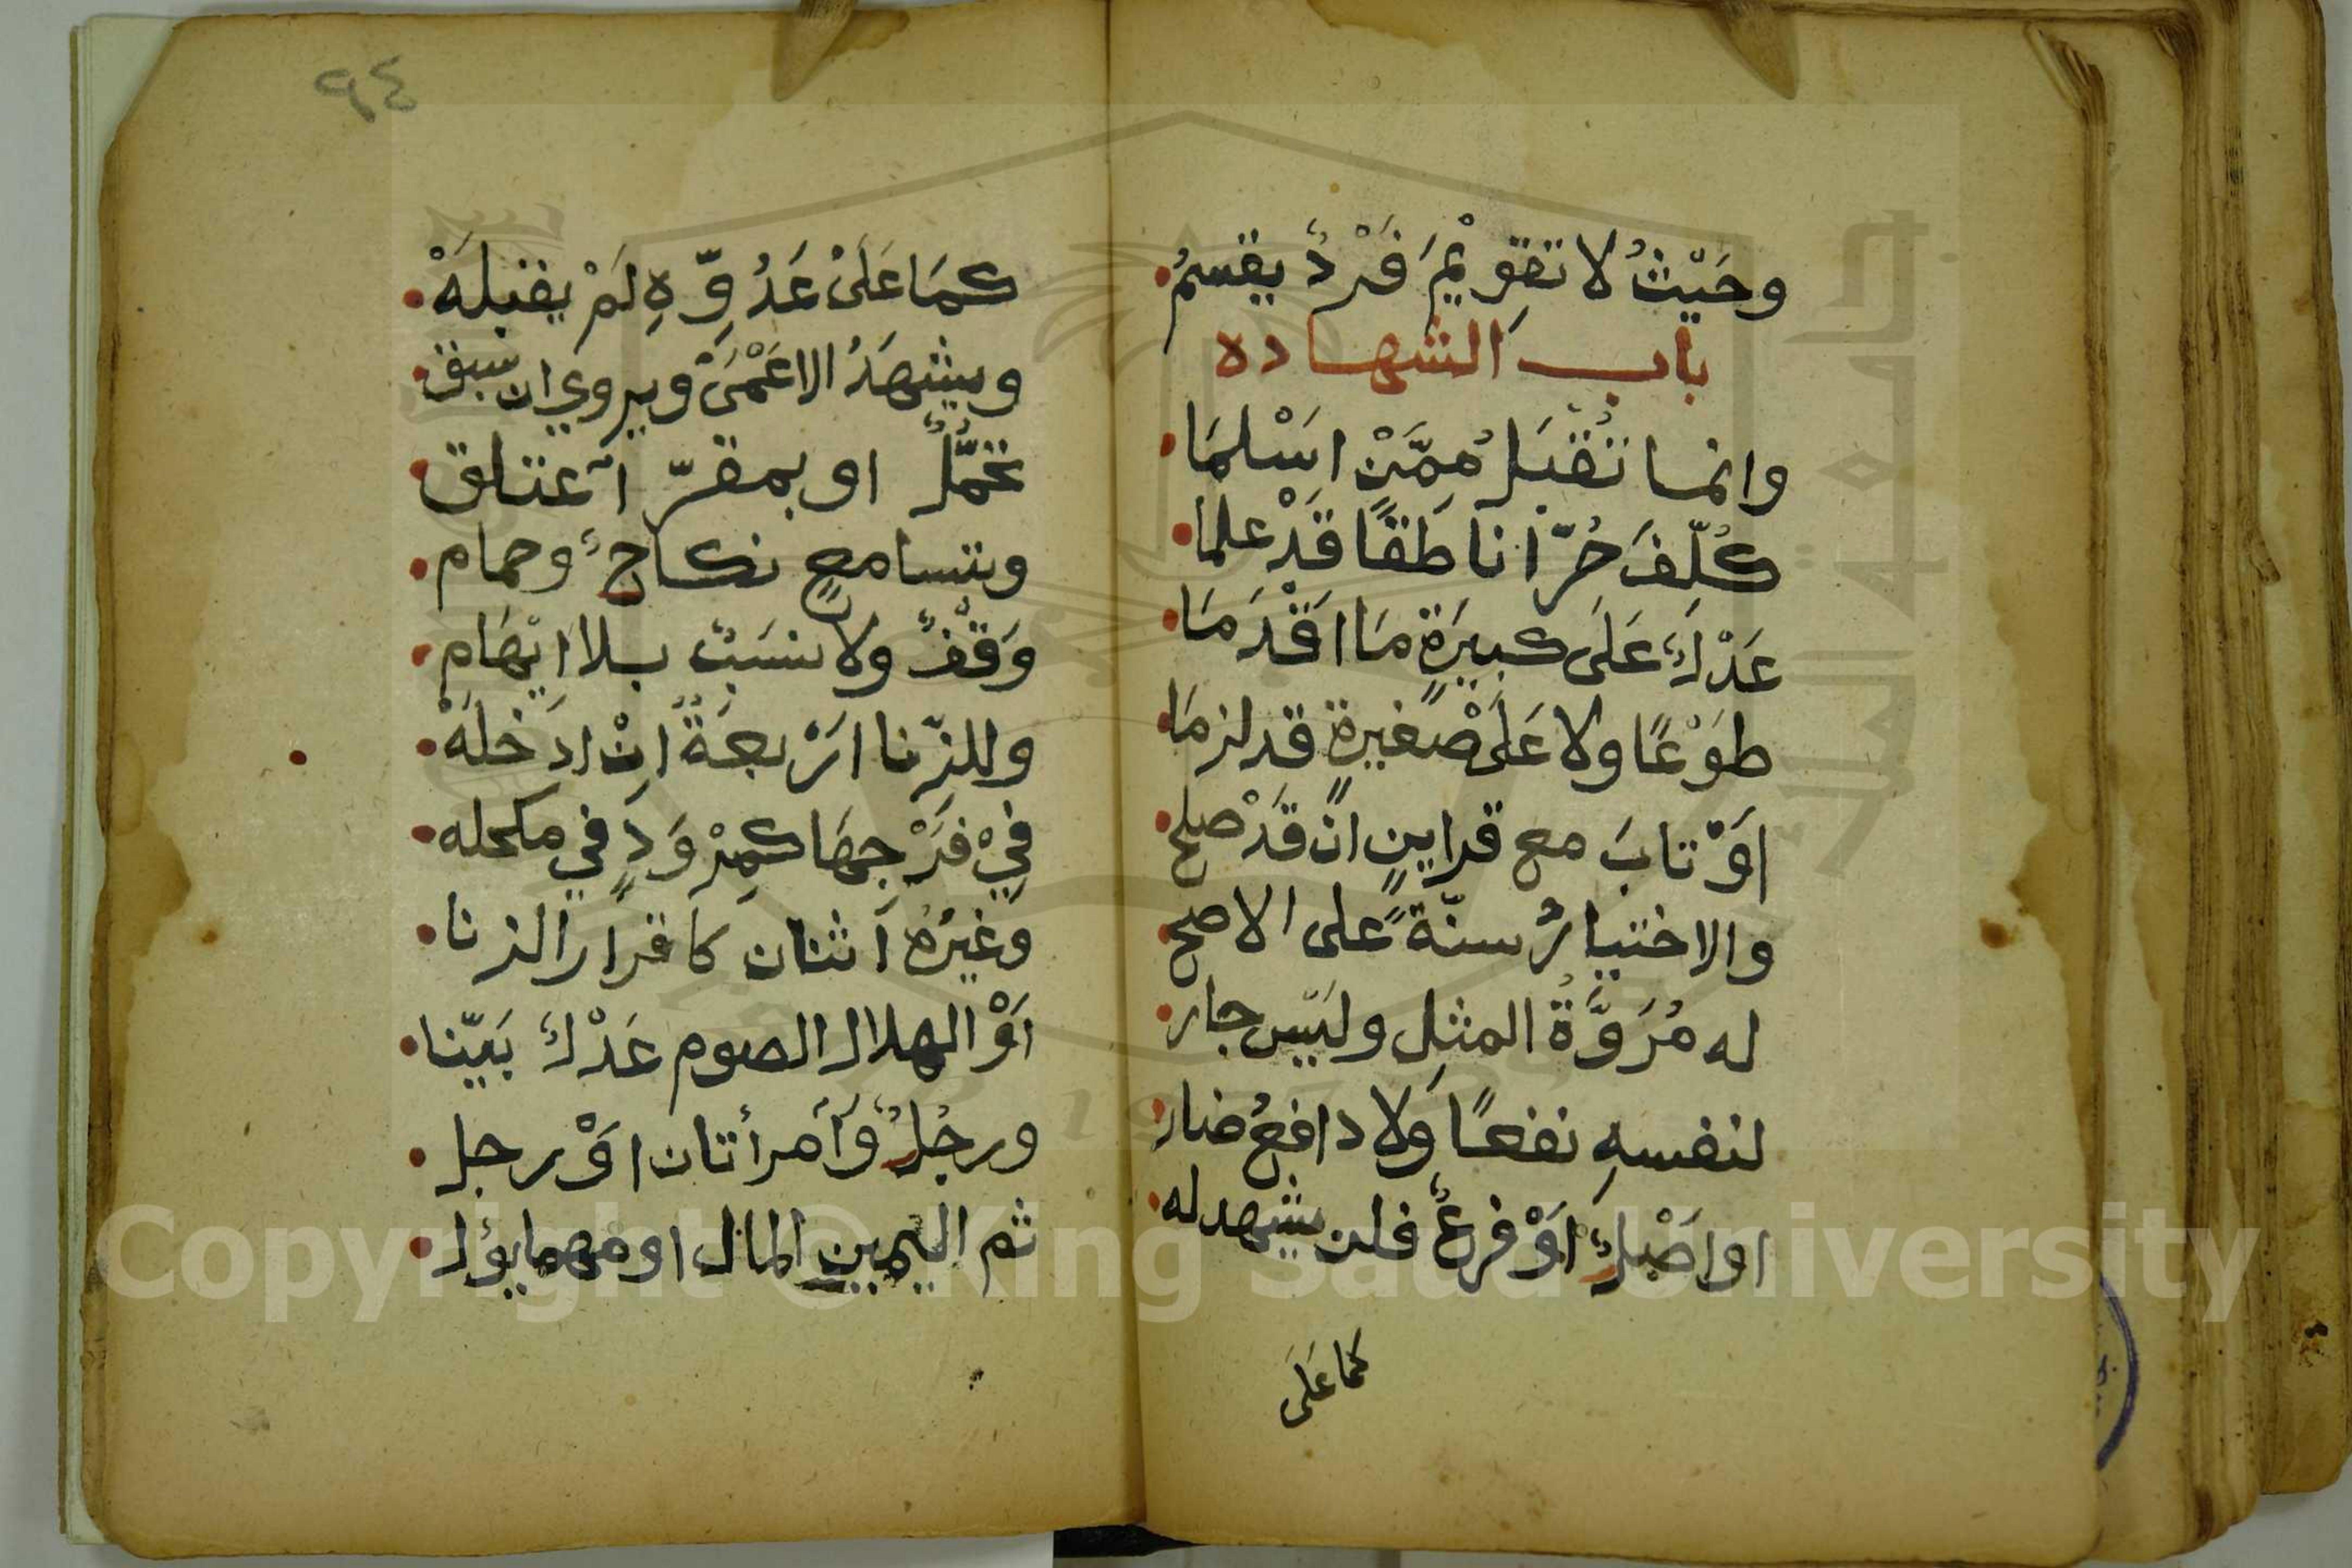 وحَيْثُ لا تقوِيْمَ فَرْدٌ يقسمُ
باب الشهاده
وانما تُقْبَلُ مِمَّنْ اسْلمَا
كُلِّفَ حُرّا ناطقًا قَدْ علما
عَدْلٌ عَلَى كبيرَةٍ مَا اقْدَمَا
طوْعًا ولا عَلَى صغيرةٍ قد لزمَا
اوْ تابَ مع قراينٍ انْ قدْ صلح
والاختبارُ سنّةً على الاصح
له مُرَوَّةُ المثلِ وليس جار
لنفسهِ نفعًا وَلا دافعُ ضار
او اصْلٌ اوْ فرعٌ فلن يشهد له
كما عَلَى
٩٤
كمَا عَلَىْ عَدُوِّهِ لَمْ يقبلَهْ
ويشهَدُ الاعْمَىْ ويروي ان سبق
تحمُّلٌ او بمقرّ آعتلق
وبتسامعٍ نكاحٌ وحمام
وَقْفٌ ولا نسَبٌ بلا اتهَام
وللزِّنا ارْبعَةٌ انْ ادخلَهْ
فِيْ فرْجِهَا كمِرْوَدٍ في مكحله
وغيرُهُ آثنان كاقرار الزنا
اوْ الهلال الصوم عَدْلٌ بَيّنا
ورجُلٌ وآمرأتان اوْ رجل
ثم اليمين المال او مهما يؤل
Copyright © King Saud University